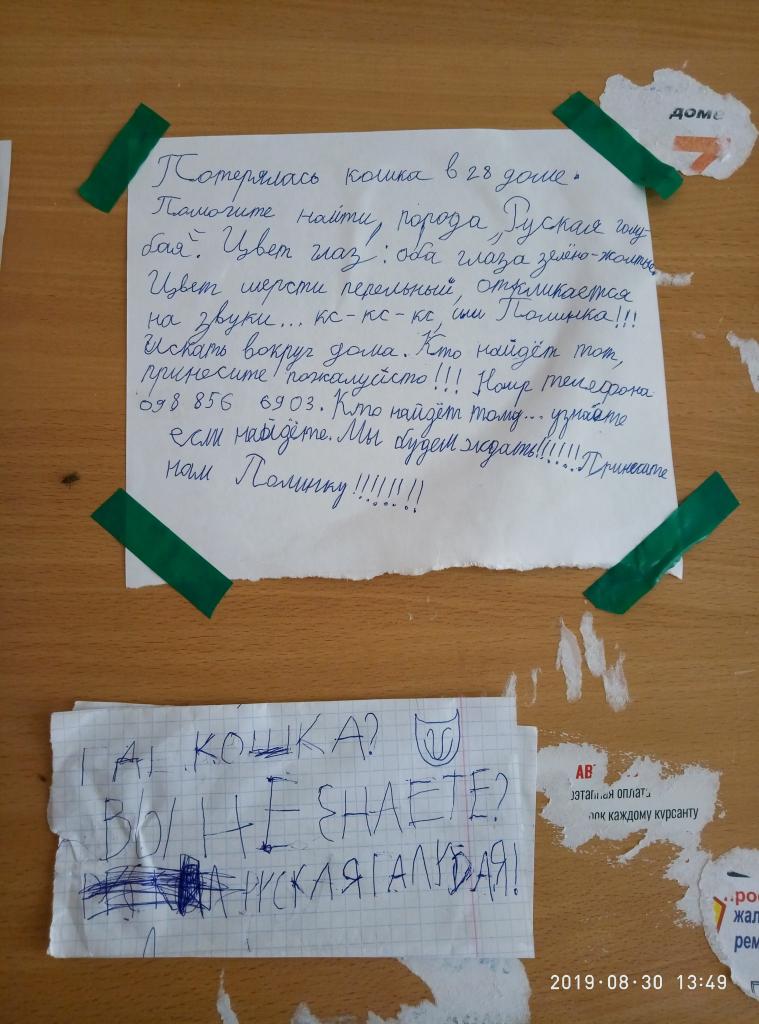 доме
7
Потерялась кошка в 28 доме.
Памогите найти, порода „Руская голу-
бая". Цвет глаз: оба глаза зелёно-жолтые.
Цвет шерсти пепельный, откликается
на звуки... кс-кс-кс, или Полинка!!!
Искать вокруг дома. Кто найдёт тот,
принесите пожалуйсто!!! Номр телефона
098 856 6903. Кто найдёт тому... узнаете
если найдёте. Мы будем ждать!!!!!! Принесите
нам Полинку!!!!!!!!
ГДЕ КОШКА?
ВЫ НЕ ЗНАЕТЕ?
РУСКАЯ ГАЛУБАЯ!
АВ
оэтапная оплата
рок каждому курсанту
..рос
жал
рем
2019·08·30 13:49